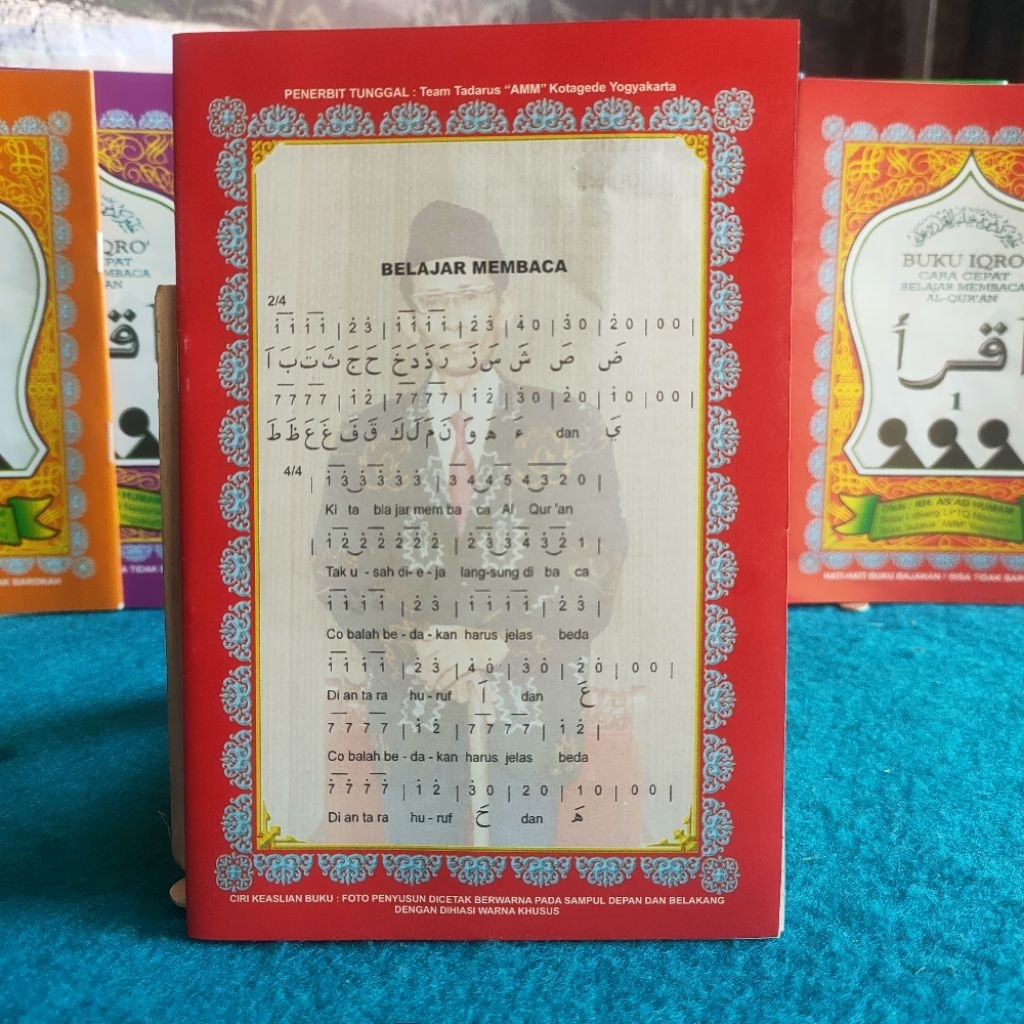 PENERBIT TUNGGAL : Team Tadarus "AMM" Kotagede Yogyakarta
BELAJAR MEMBACA
2/4
i̇ i̇ i̇ i̇ | 2̇ 3̇ | i̇ i̇ i̇ i̇ | 2̇ 3̇ | 4̇ 0 | 3̇ 0 | 2̇ 0 | 0 0 |
اَ بَ تَ ثَ جَ حَ خَ دَ ذَ رَ زَ سَ شَ صَ ضَ
7 7 7 7 | i̇ 2̇ | 7 7 7 7 | i̇ 2̇ | 3̇ 0 | 2̇ 0 | i̇ 0 | 0 0 |
طَ ظَ عَ غَ فَ قَ كَ لَ مَ نَ وَ هَ ءَ dan يَ
4/4
| i̇ 3̇ 3̇ 3̇ 3̇ 3̇ | 3̇ 4̇ 4̇ 5̇ 4̇ 3̇ 2̇ 0 |
Ki ta bla jar mem ba ca Al Qur'an
| i̇ 2̇ 2̇ 2̇ 2̇ 2̇ | 2̇ 3̇ 3̇ 4̇ 3̇ 2̇ 1 |
Tak u - sah di - e - ja lang-sung di ba ca
i̇ i̇ i̇ i̇ | 2̇ 3̇ | i̇ i̇ i̇ i̇ | 2̇ 3̇ |
Co balah be - da - kan harus jelas beda
i̇ i̇ i̇ i̇ | 2̇ 3̇ | 4̇ 0 | 3̇ 0 | 2̇ 0 | 0 0 |
Di an ta ra hu - ruf اَ dan عَ
7 7 7 7 | i̇ 2̇ | 7 7 7 7 | i̇ 2̇ |
Co balah be - da - kan harus jelas beda
7 7 7 7 | i̇ 2̇ | 3̇ 0 | 2 0 | 1 0 | 0 0 |
Di an ta ra hu - ruf حَ dan هَ
CIRI KEASLIAN BUKU : FOTO PENYUSUN DICETAK BERWARNA PADA SAMPUL DEPAN DAN BELAKANG
DENGAN DIHIASI WARNA KHUSUS
BUKU IQRO
CARA CEPAT
BELAJAR MEMBACA
AL-QUR'AN
اقرأ
1
HATI-HATI BUKU BAJAKAN ! BISA TIDAK BAR